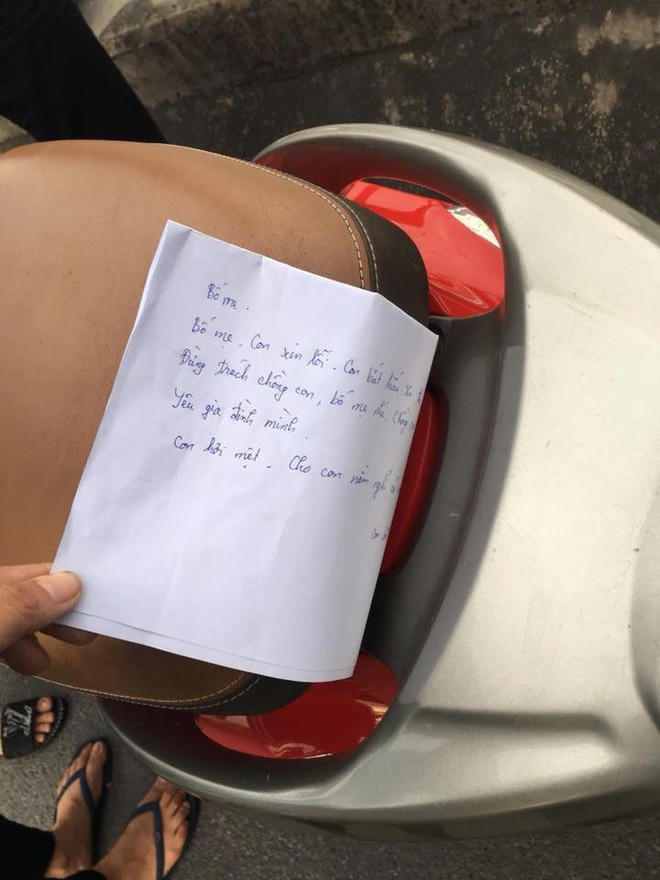 Bố mẹ.
Bố mẹ. Con xin lỗi. Con bất hiếu
Đừng trách chồng con, bố mẹ nhé, chồng
Yêu gia đình mình.
Con hơi mệt. Cho con nằm nghỉ
con